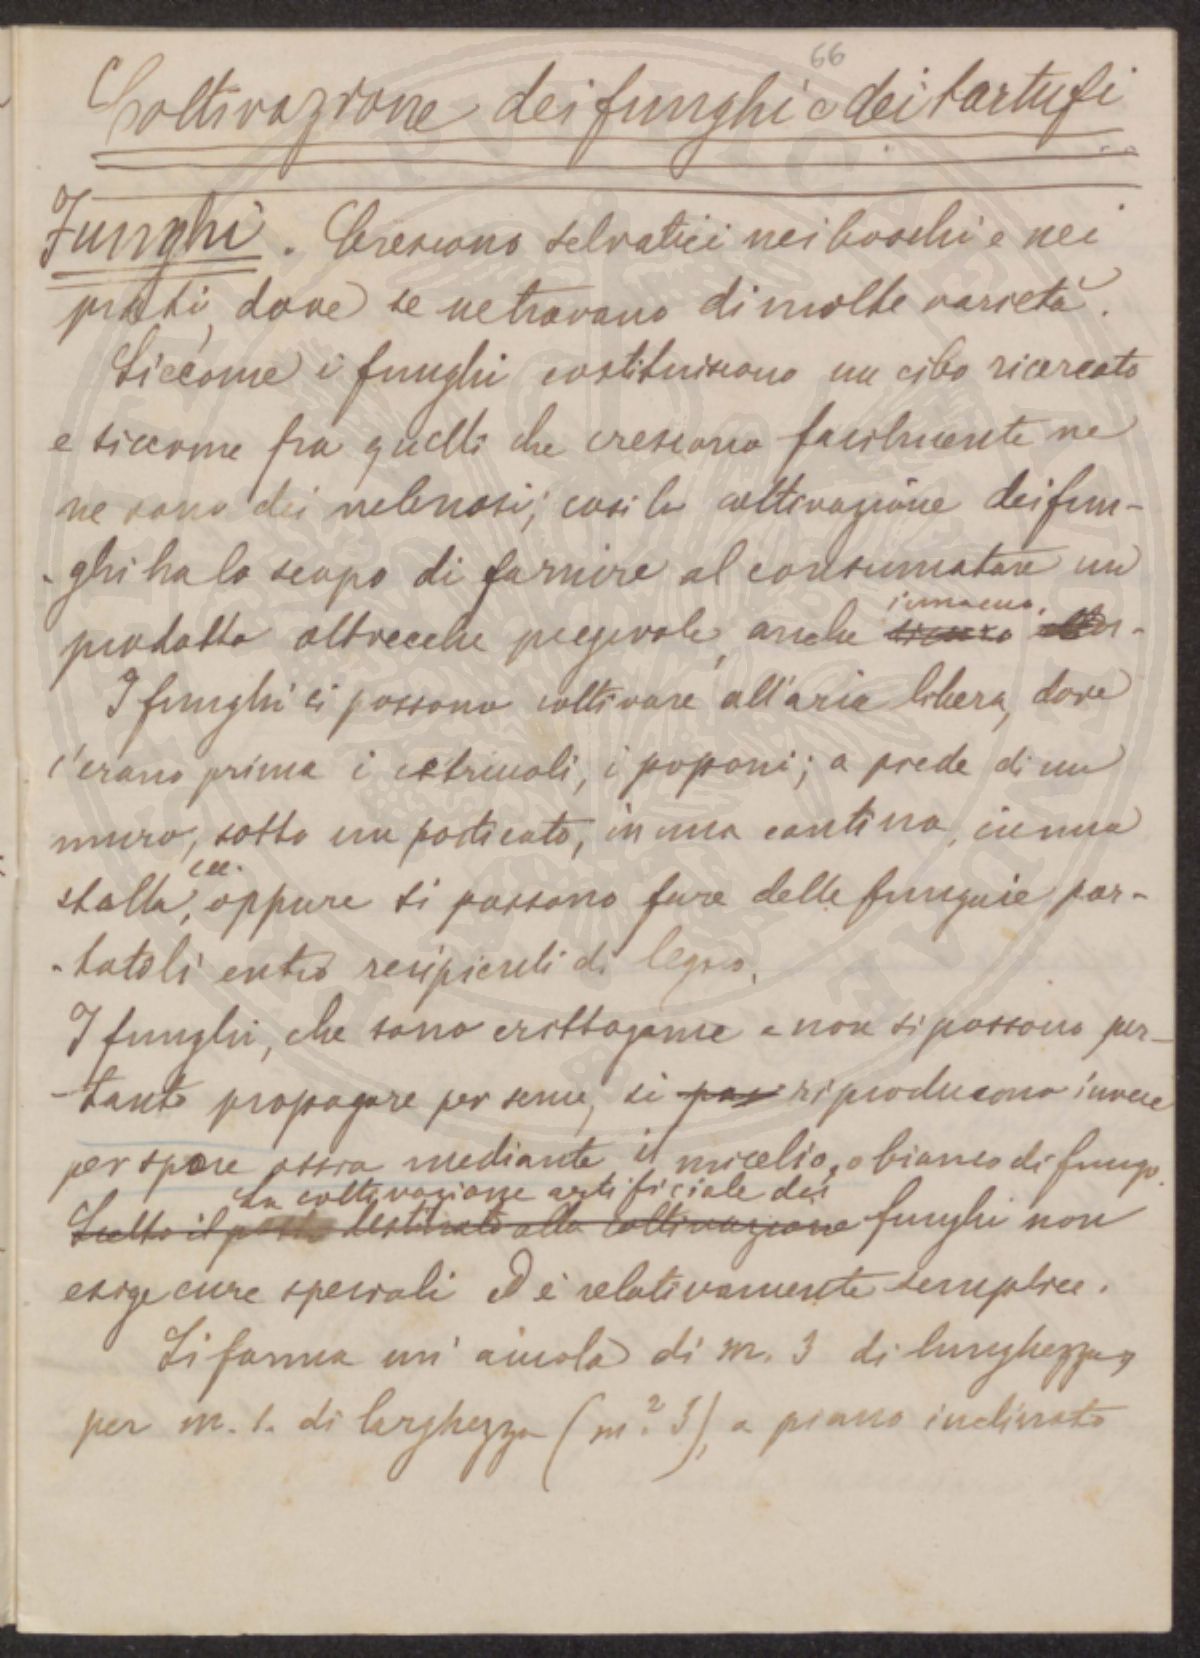 66
Coltivazione dei funghi e dei tartufi
Funghi. Crescono selvatici nei boschi e nei
prati, dove se ne trovano di molte varietà.
Siccome i funghi costituiscono un cibo ricercato
e siccome fra quelli che crescono facilmente ne
ne sono dei velenosi; così la coltivazione dei fun-
-ghi ha lo scopo di fornire al consumatore un
innocuo.
prodotto oltrecche pregevole, anche sicuro
I funghi si possono coltivare all'aria libera, dove
c'erano prima i cetriuoli, i poponi; a piede di un
muro, sotto un porticato, in una cantina, in una
ecc.
stalla, oppure si possono fare delle fungaie por-
-tatili entro recipienti di legno.
I funghi, che sono crittogame e non si possono per-
-tanto propagare per seme, si pos riproducono invece
per spore ossia mediante il micelio, o bianco di fungo.
La coltivazione artificiale dei
Scelto il posto destinato alla coltivazione funghi non
esige cure speciali ed è relativamente semplice.
Si forma un' aiuola di m. 3 di lunghezza,
per m. 1. di larghezza (m² 3), a piano inclinato